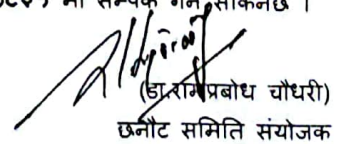 मा सम्पर्क गर्न सकिनेछ ।
(डा.रामप्रबोध चौधरी)
छनौट समिति संयोजक